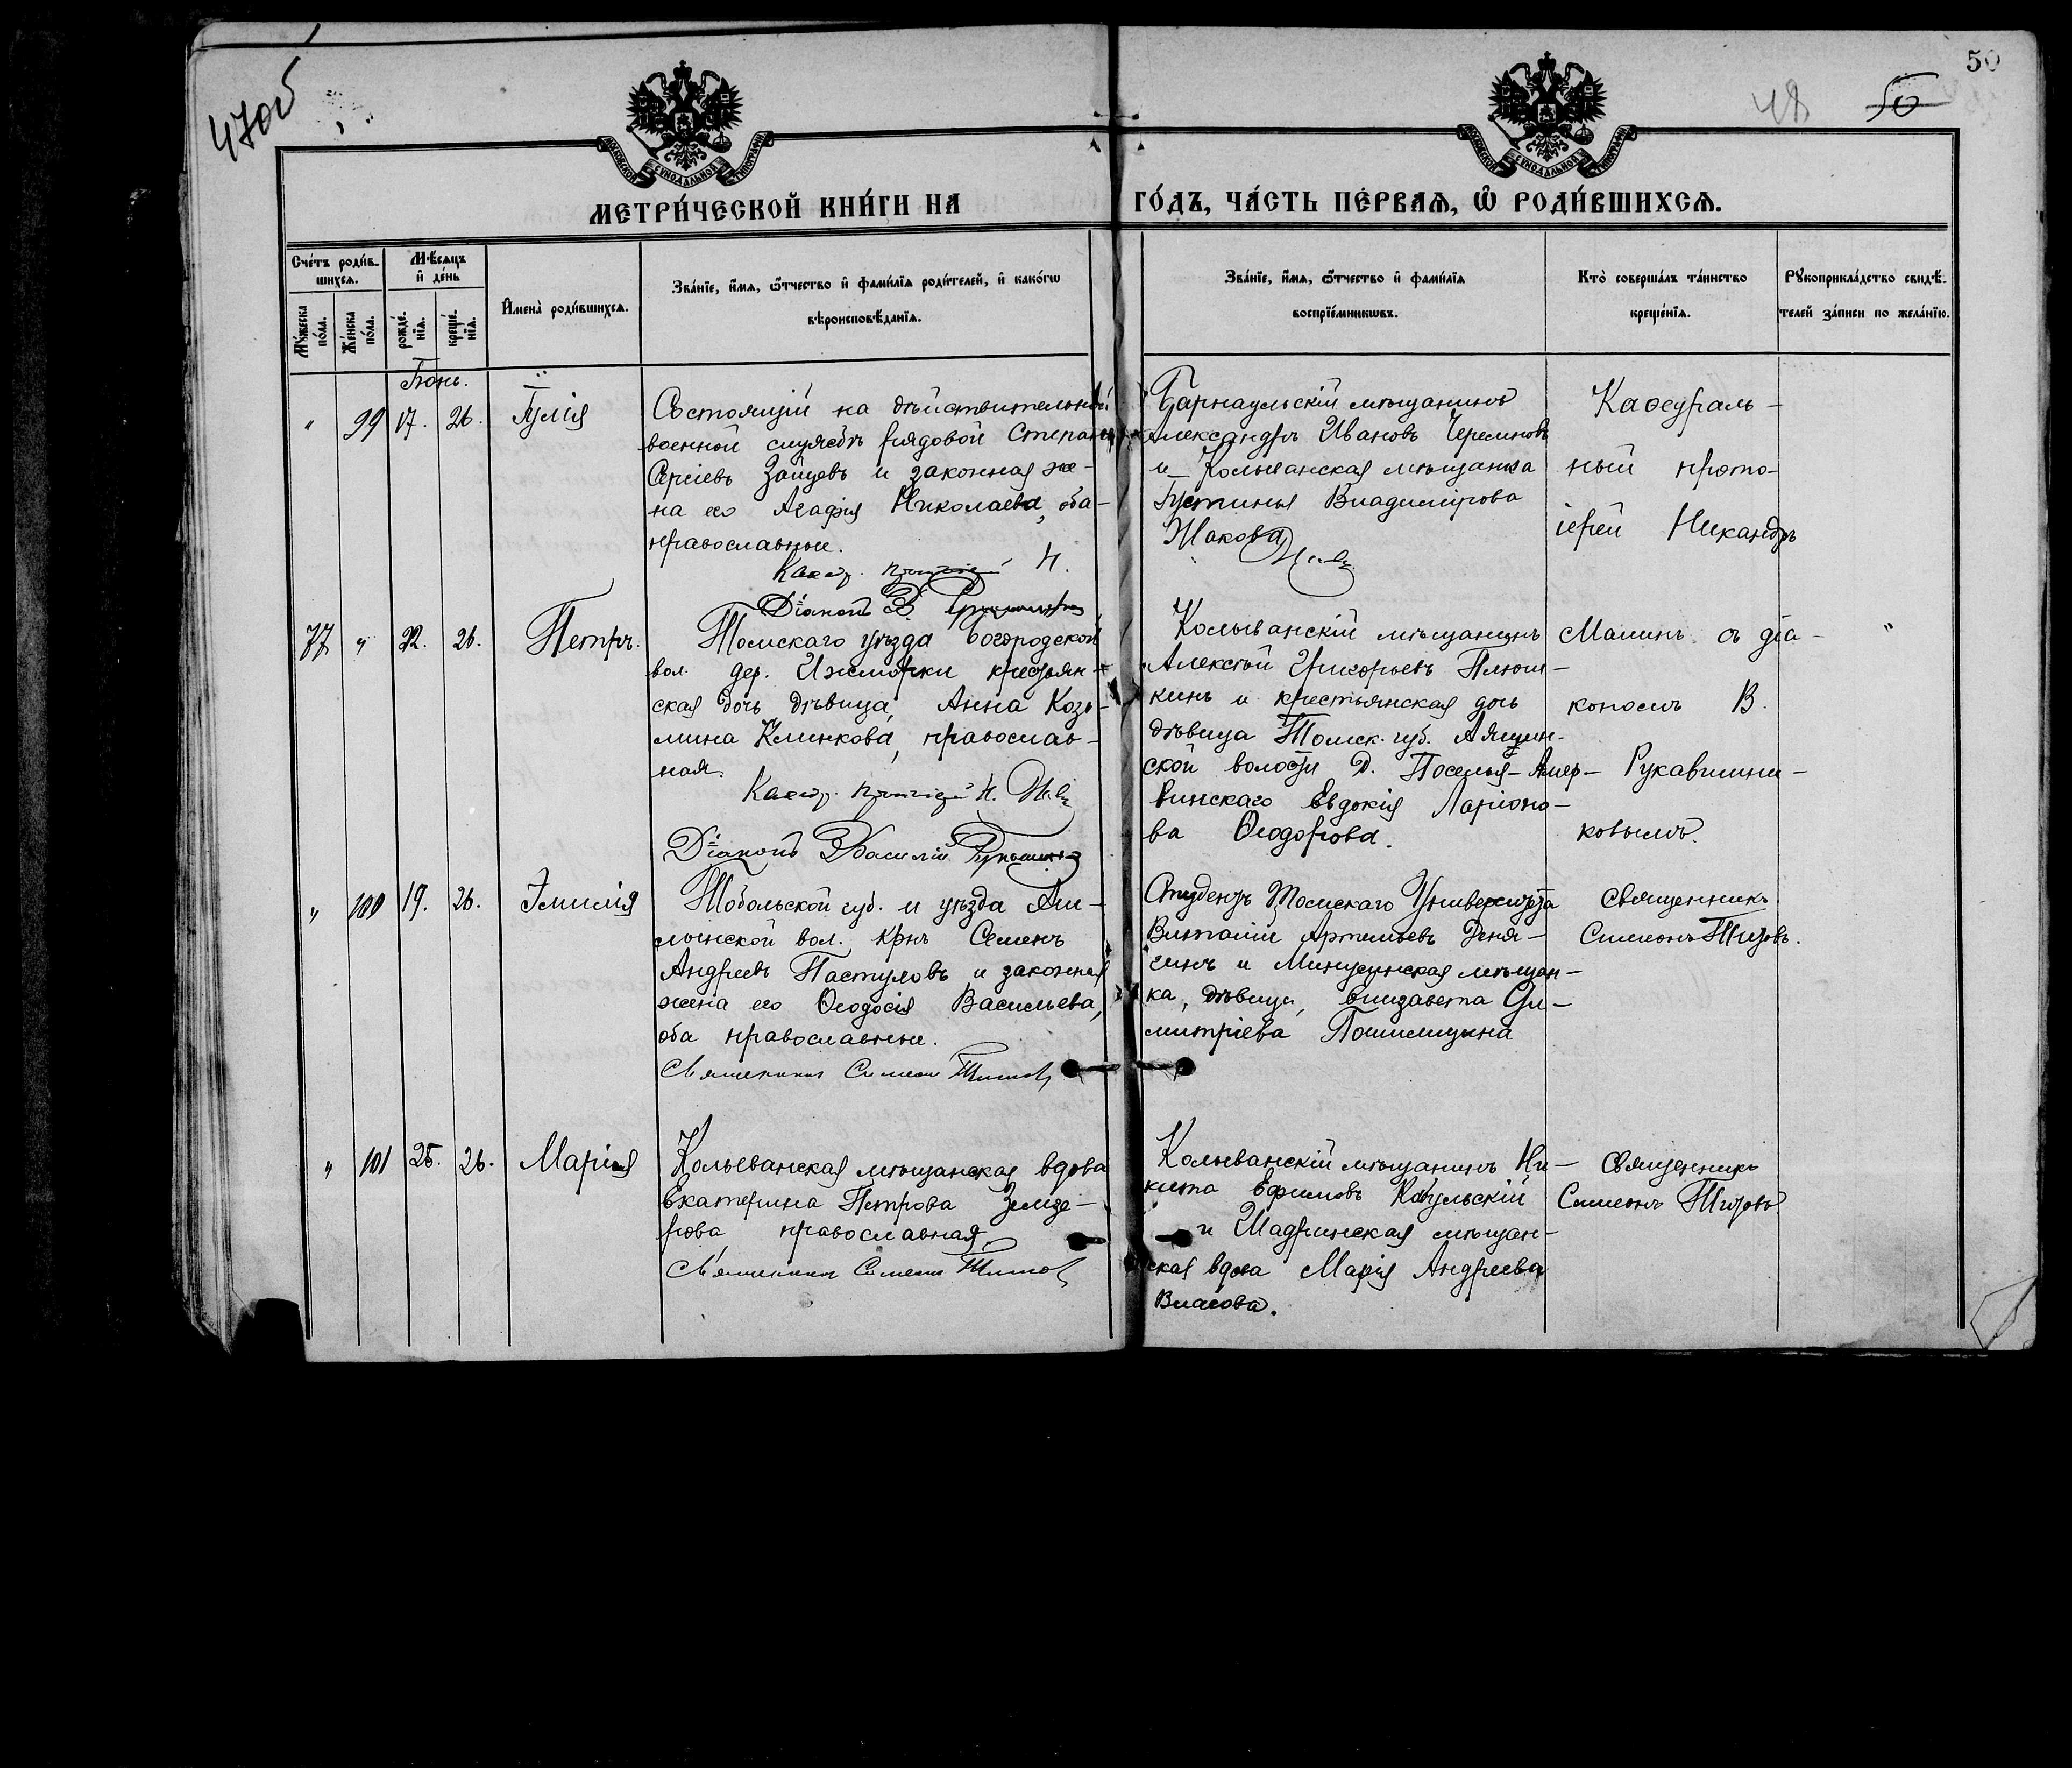 47об
50
48
50
МОСКОВСКОЙ СѴНОДАЛЬНОЙ ТИПОГРАФІИ
МОСКОВСКОЙ СѴНОДАЛЬНОЙ ТИПОГРАФІИ
МЕТРИ́ЧЕСКОЙ КНИ́ГИ НА
ГО́ДЪ, ЧА́СТЬ ПЕ́РВАѦ, Ѽ РОДИ́ВШИХСѦ.
Сче́тъ роди́в-
шихсѧ.
Мꙋ́жеска по́ла.
Же́нска по́ла.
Мѣ́сѧцъ
и҆ де́нь
рожде́-нїѧ.
креще́-нїѧ.
И҆мена̀ роди́вшихсѧ.
Зва́нїе, и҆́мѧ, ѻ҆́тчество и҆ фами́лїѧ роди́телей, и҆ како́гѡ
вѣроисповѣ́данїѧ.
Зва́нїе, и҆́мѧ, ѻ҆́тчество и҆ фами́лїѧ
воспрїе́мникѡвъ.
Кто̀ соверша́лъ та́инство
креще́нїѧ.
Рꙋкоприкла́дство свидѣ́-
телей за́писи по жела́нїю.
Іюнь.
" 99 17. 26. Іулія
Состоящій на дѣйствительной
военной службѣ рядовой Степанъ
Сергіевъ Зайцевъ и законная же-
на его Агафія Николаева, оба
православные.
Каѳедр. протоіерей Н.
Діаконъ В.
Барнаульскій мѣщанинъ
Александръ Ивановъ Черемновъ
и Колыванская мѣщанка
Іустинья Владимірова
Жакова
Каѳедраль-
ный прото-
іерей Никандръ
77 " 22. 26. Петръ.
Томскаго уѣзда Богородской
вол. дер. Ижморки крестьян-
ская дочь дѣвица, Анна Козь-
мина Климкова, православ-
ная.
Каѳедр. протоіерей Н.
Діаконъ Василій
Колыванскій мѣщанинъ
Алексѣй Григорьевъ Плюш-
кинъ и крестьянская дочь
дѣвица Томск. губ.
ской волости Д.
Евдокія Ларіоно-
ва Ѳеодорова.
Малинъ съ діа-
кономъ В.
Рукавишни-
ковымъ.
"
" 100 19. 26. Эмилія
Тобольской губ. и уѣзда
лынской вол. крнъ Семенъ
Андреевъ Пастуловъ и законная
жена его Ѳеодосія Васильева,
оба православные.
Священникъ Симеонъ Титовъ
Студентъ Томскаго Университета
Виталій Артемьевъ
и Минусинская мѣщан-
ка, дѣвица, Елизавета Ди-
митріева
Священникъ
Симеонъ Титовъ.
" 101 25. 26. Марія
Колыванская мѣщанская вдова
Екатерина Петрова Земзе-
рова православная.
Священникъ Симеонъ Титовъ
Колыванскій мѣщанинъ Ни-
кита Ефимовъ
и Шадринская мѣщан-
ская вдова Марія Андреева
Власова.
Священникъ
Симеонъ Титовъ